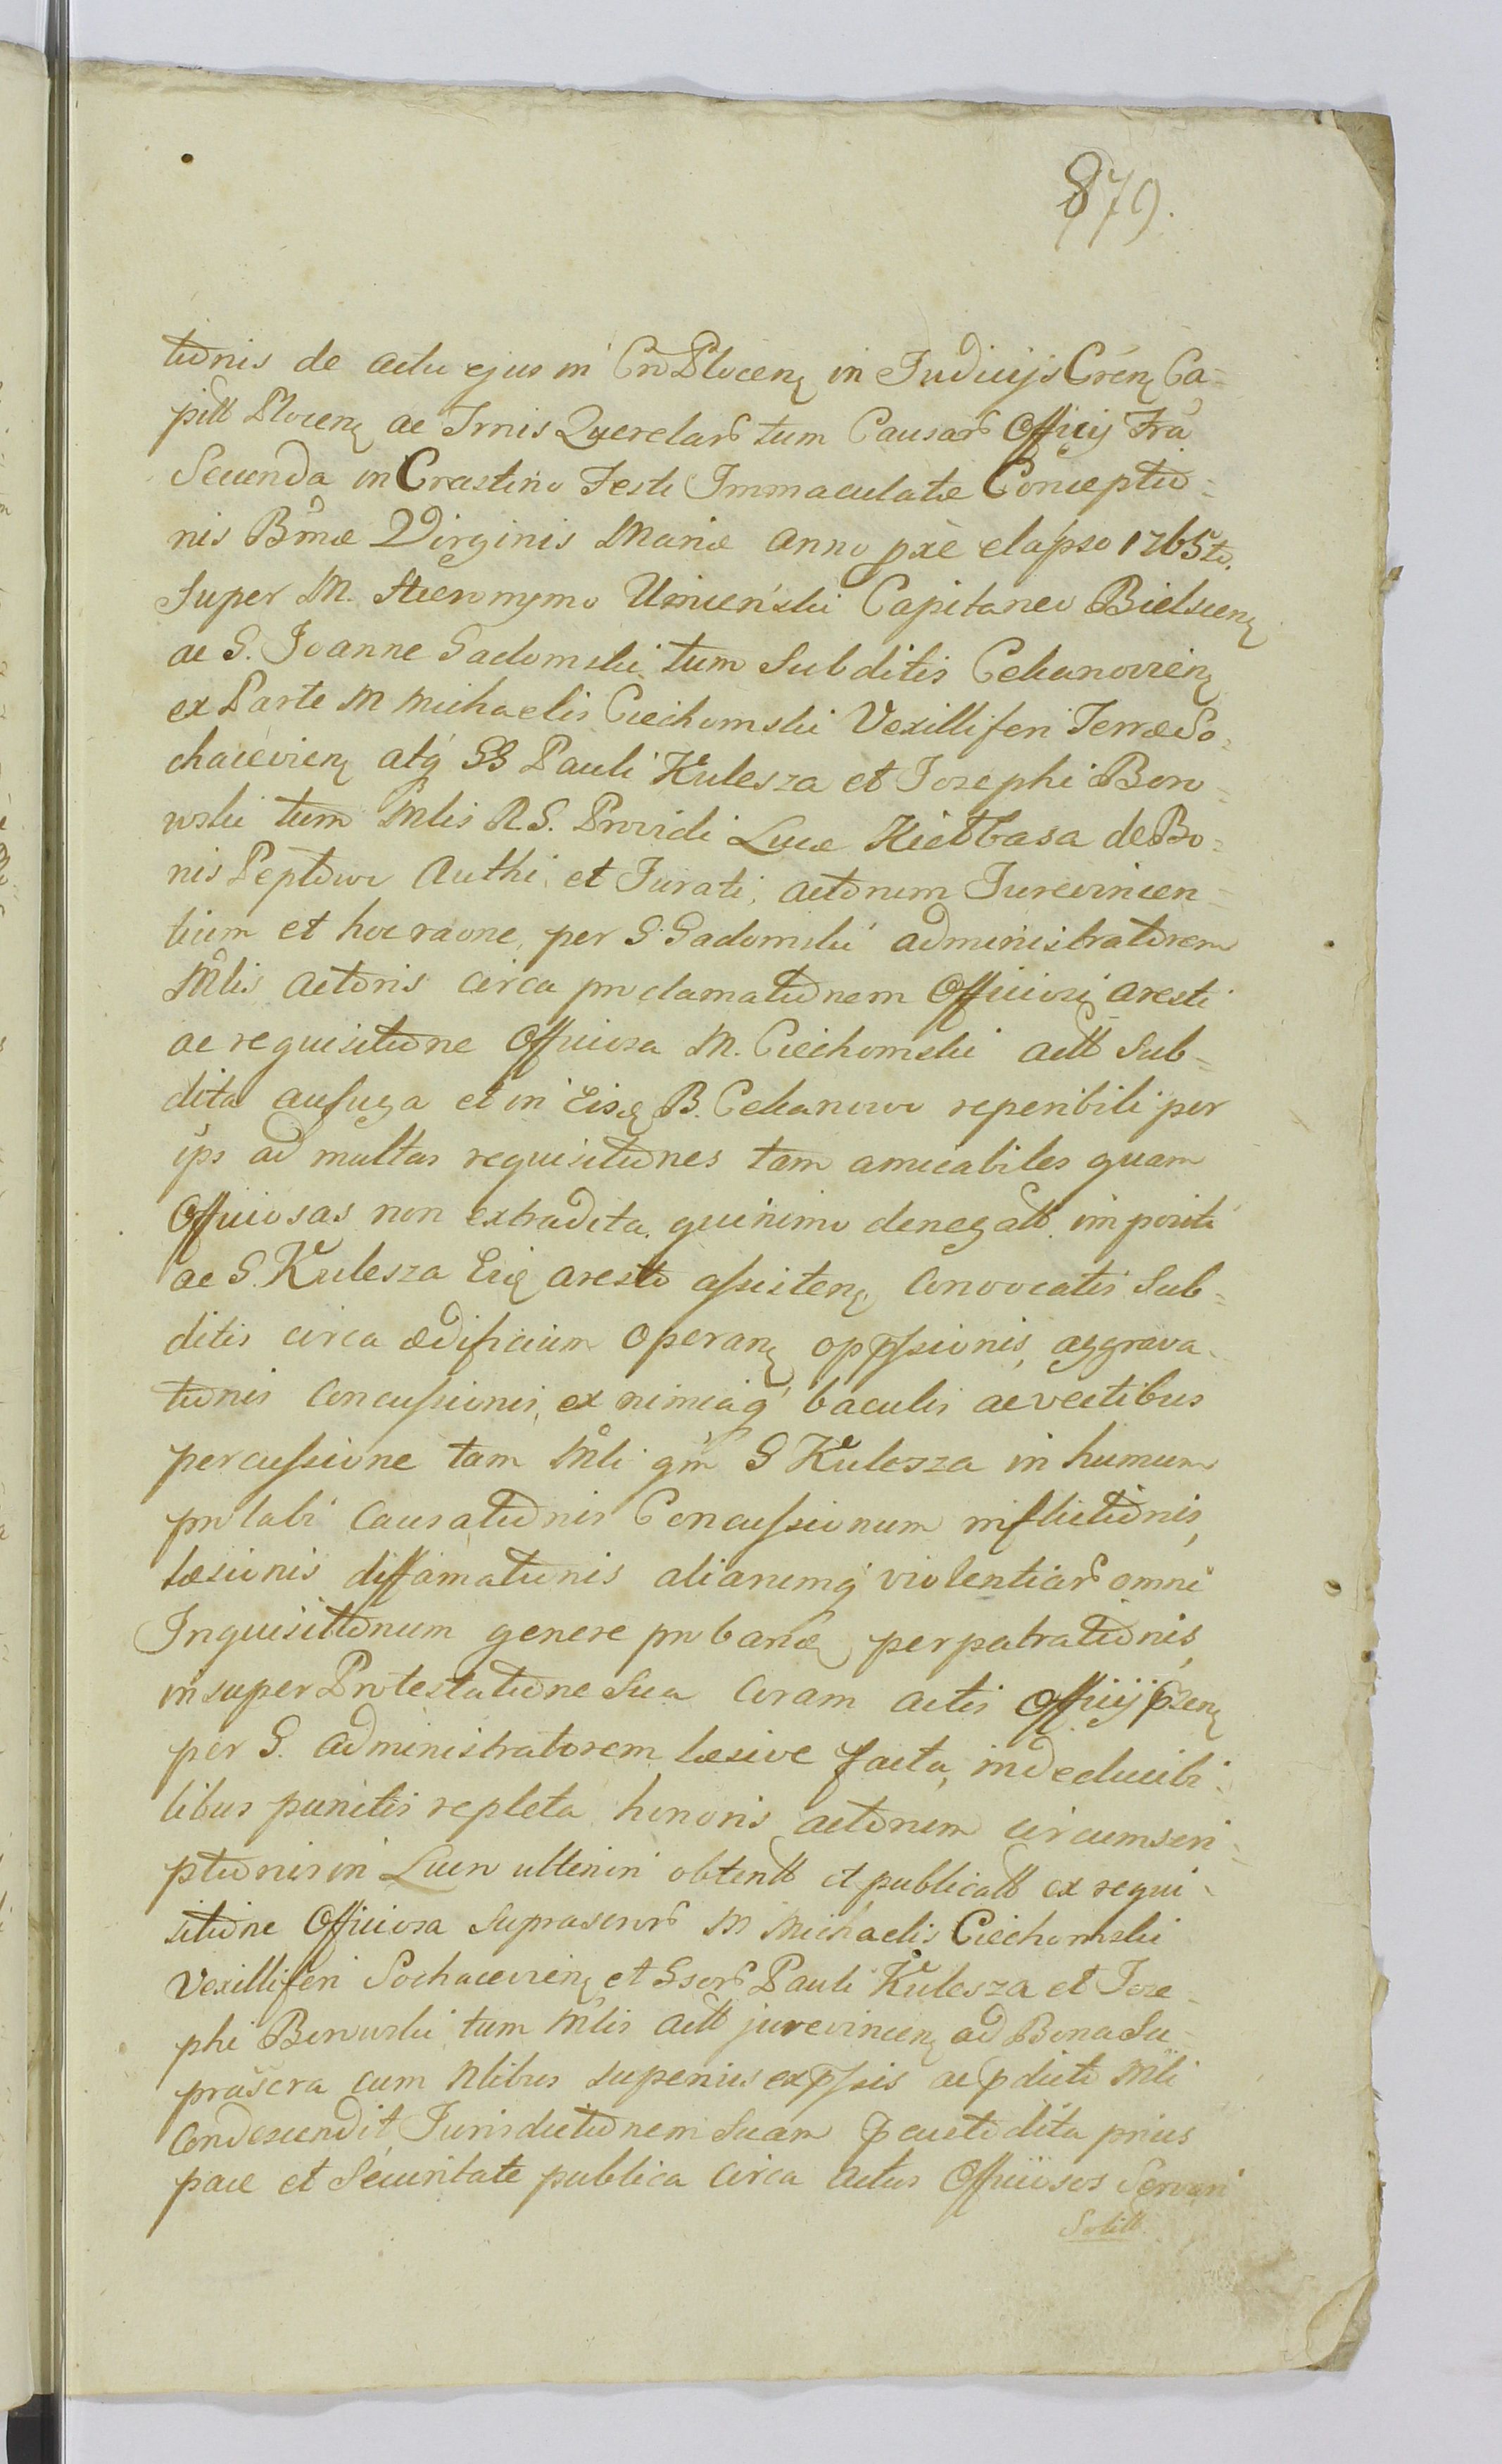 879.
tionis de actu ejus in Crō Plocenȝ in Judicijs Crēnȝ Ca=
pitt Plocenȝ ac Irnis Querelarō tum Causarō Officij Frā
Secunda in Crastino Festi Immaculatæ Conceptio=
nis Bmæ Virginis Mariæ Anno pxe elapso 1765to.
Super M. Hieronymo Umieński Capitaneo Bielscenȝ
ac G. Joanne Gadomski tum Subditis Cekanovienȝ
ex Parte M Michaelis Ciechomski Vexilliferi Terræ So=
chacevienȝ atq́ GG Pauli Kulesza et Josephi Boro=
wski tum Mlis R.S. Providi Lucæ Kiełbasa de Bo=
nis Peptowo Authi et Jurati, actorum Jurevincen=
tium et hoc raone, per G Gadomski administratorem
Mlis Actoris circa proclamationem Officiosi Aresti
ac requisitione Officiosa M. Ciechomski actt Sub=
dita aufuga et in Eisȩ B. Cekanowo reperibili per
ips ad multas requisitiones tam amicabiles quam
Officiosas non extradita, quinimo denegatt imposito
ac G. Kulesza Eiȩ aresto assistenȝ Convocatis Sub=
ditis circa ædificium operanȝ oppssionis, aggrava=
tionis Concussionis, ex nimiaq́ baculis ac vectibus
percussione tam Mli qm G Kulesza in humum
prolabi Causationis Concussionum inflictionis,
læsionis diffamationis aliarumq́ violentiarō omni
Inquisitionum genere probanȝ perpatrationis,
insuper Protestatione Sua Coram Actis Officij pzenȝ
per G. Administratorem læsive facta, indeducibi=
libus punctis repleta honoris actorum circumscri=
ptionis in Lucro ulteriori obtentt et publicatt ex requi=
sitione Officiosa Suprascrorō M Michaelis Ciechomski
Vexilliferi Sochacevienȝ et Gsorō Pauli Kulesza et Jose=
phi Borowski tum Mlis Actt jurevincenȝ ad Bona Su=
prascra cum Nlibus superius expssis ac pdicto Mli
Condescendit, Jurisdictionem Suam pcustodita prius
pace et Securitate publica circa Actus Officiosos Servari
Solitt